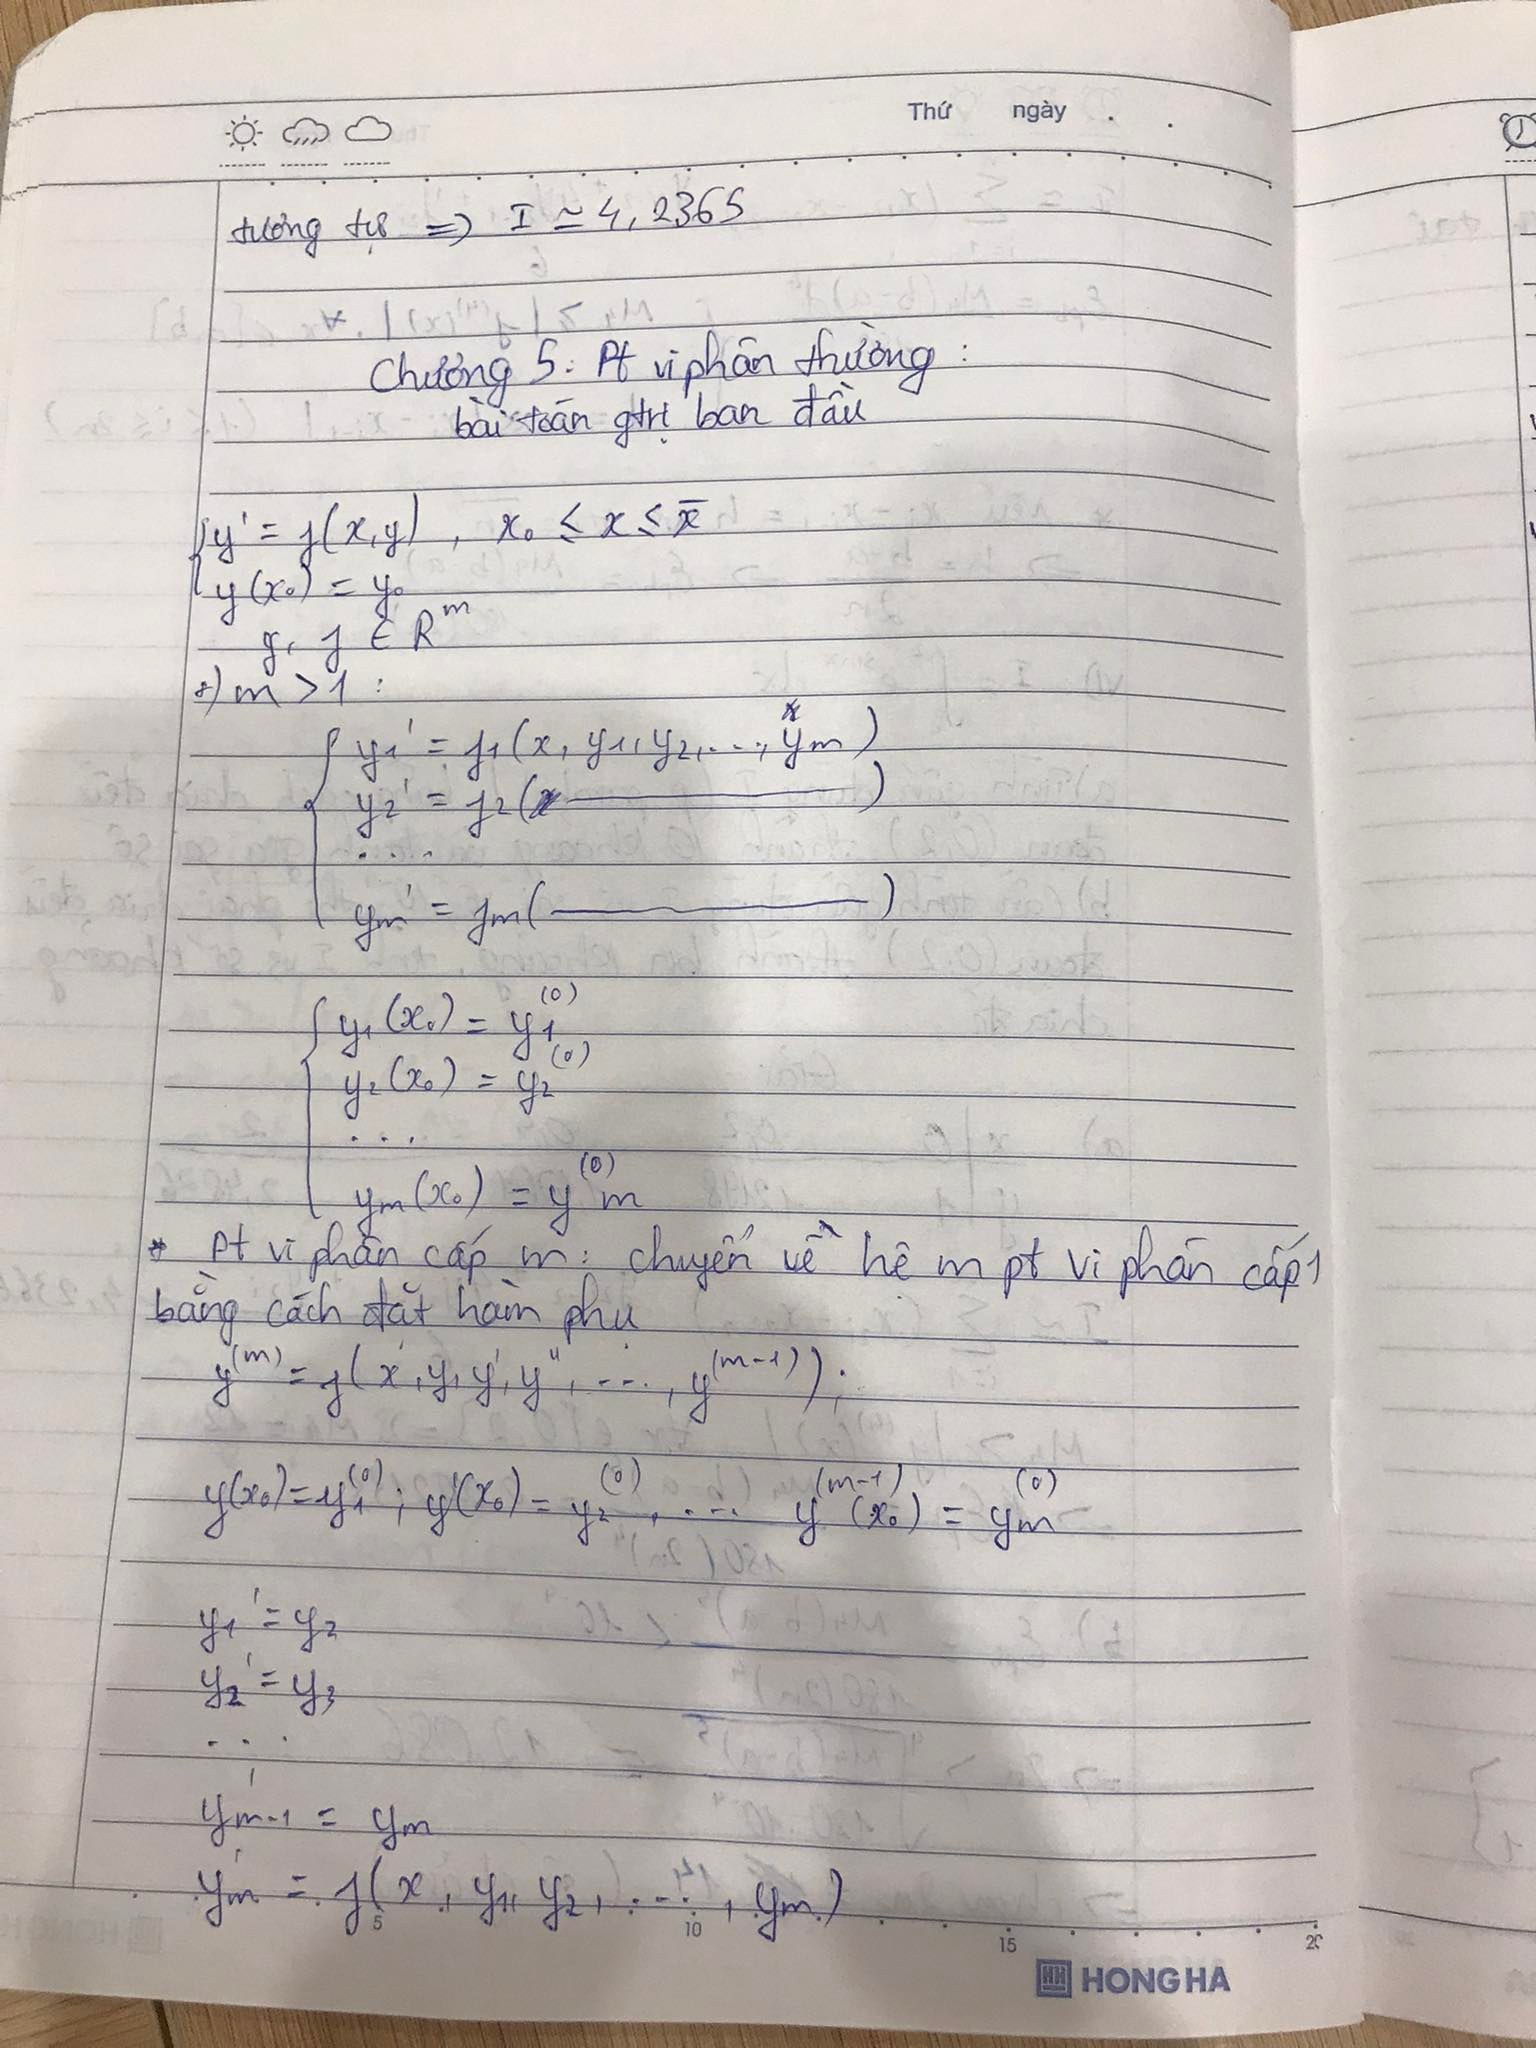 Thứ ngày
tương tự => I ≃ 4,2365
Chương 5: Pt vi phân thường:
bài toán gtrị ban đầu
{ y' = f(x,y), x₀ ≤ x ≤ x̄
y(x₀) = y₀
y, f ∈ R^m
+) m > 1:
{ y₁' = f₁(x, y₁, y₂, ..., yₘ)
y₂' = f₂(x ———)
...
yₘ' = fₘ(———)
{ y₁(x₀) = y₁⁽⁰⁾
y₂(x₀) = y₂⁽⁰⁾
...
yₘ(x₀) = y⁽⁰⁾ₘ
* Pt vi phân cấp m: chuyển về hệ m pt vi phân cấp 1
bằng cách đặt hàm phụ
y⁽ᵐ⁾ = f(x, y, y', y'', ..., y⁽ᵐ⁻¹⁾);
y(x₀) = y₁⁽⁰⁾; y'(x₀) = y₂⁽⁰⁾, ... y⁽ᵐ⁻¹⁾(x₀) = yₘ⁽⁰⁾
y₁' = y₂
y₂' = y₃
...
y'ₘ₋₁ = yₘ
yₘ' = f(x, y₁, y₂, ..., yₘ)
5 10 15 20
HONG HA